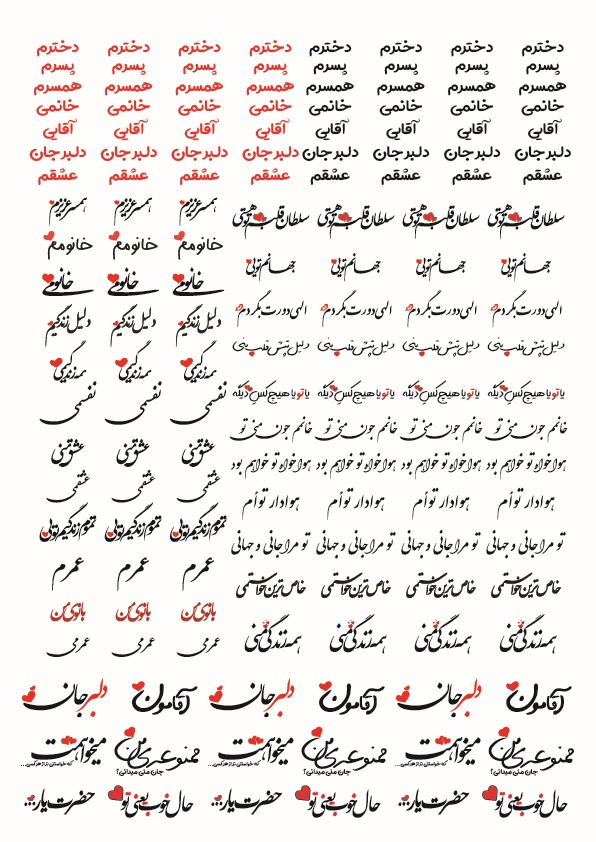 دخترم دخترم دخترم دخترم دخترم دخترم دخترم دخترم
پسرم پسرم پسرم پسرم پسرم پسرم پسرم پسرم
همسرم همسرم همسرم همسرم همسرم همسرم همسرم همسرم
خانمی خانمی خانمی خانمی خانمی خانمی خانمی خانمی
آقایی آقایی آقایی آقایی آقایی آقایی آقایی آقایی
دلبرجان دلبرجان دلبرجان دلبرجان دلبرجان دلبرجان دلبرجان دلبرجان
عشقم عشقم عشقم عشقم عشقم عشقم عشقم عشقم
سلطان قلبم تو هستی سلطان قلبم تو هستی سلطان قلبم تو هستی سلطان قلبم تو هستی
جهانم تویی جهانم تویی جهانم تویی جهانم تویی
الهی دورت بگردم الهی دورت بگردم الهی دورت بگردم الهی دورت بگردم
دلیل تپش قلبمی دلیل تپش قلبمی دلیل تپش قلبمی دلیل تپش قلبمی
یا تو یا هیچ کس دیگه یا تو یا هیچ کس دیگه یا تو یا هیچ کس دیگه یا تو یا هیچ کس دیگه
خانم جون منی تو خانم جون منی تو خانم جون منی تو خانم جون منی تو
هواخواه تو خواهم بود هواخواه تو خواهم بود هواخواه تو خواهم بود هواخواه تو خواهم بود
هوادار توأم هوادار توأم هوادار توأم هوادار توأم
تو مرا جانی و جهانی تو مرا جانی و جهانی تو مرا جانی و جهانی تو مرا جانی و جهانی
خاص ترین خواستنی خاص ترین خواستنی خاص ترین خواستنی خاص ترین خواستنی
همه زندگی منی همه زندگی منی همه زندگی منی همه زندگی منی
همسر عزیزم همسر عزیزم همسر عزیزم
خانومم خانومم خانومم
خانومی خانومی خانومی
دلیل زندگیم دلیل زندگیم دلیل زندگیم
همه زندگیمی همه زندگیمی همه زندگیمی
نفسمی نفسمی نفسمی
عشق منی عشق منی عشق منی
عشقمی عشقمی عشقمی
تموم زندگیم تویی تموم زندگیم تویی تموم زندگیم تویی
عمرم عمرم عمرم
بانوی من بانوی من بانوی من
عمرمی عمرمی عمرمی
آقامون دلبر جان آقامون دلبر جان آقامون دلبر جان
من میخواهمت من میخواهمت من میخواهمت
جان منی میدانی؟ که خواستنی تر از هر کسی... جان منی میدانی؟ که خواستنی تر از هر کسی... جان منی میدانی؟ که خواستنی تر از هر کسی...
حال خوب یعنی تو حضرت یار... حال خوب یعنی تو حضرت یار... حال خوب یعنی تو حضرت یار...